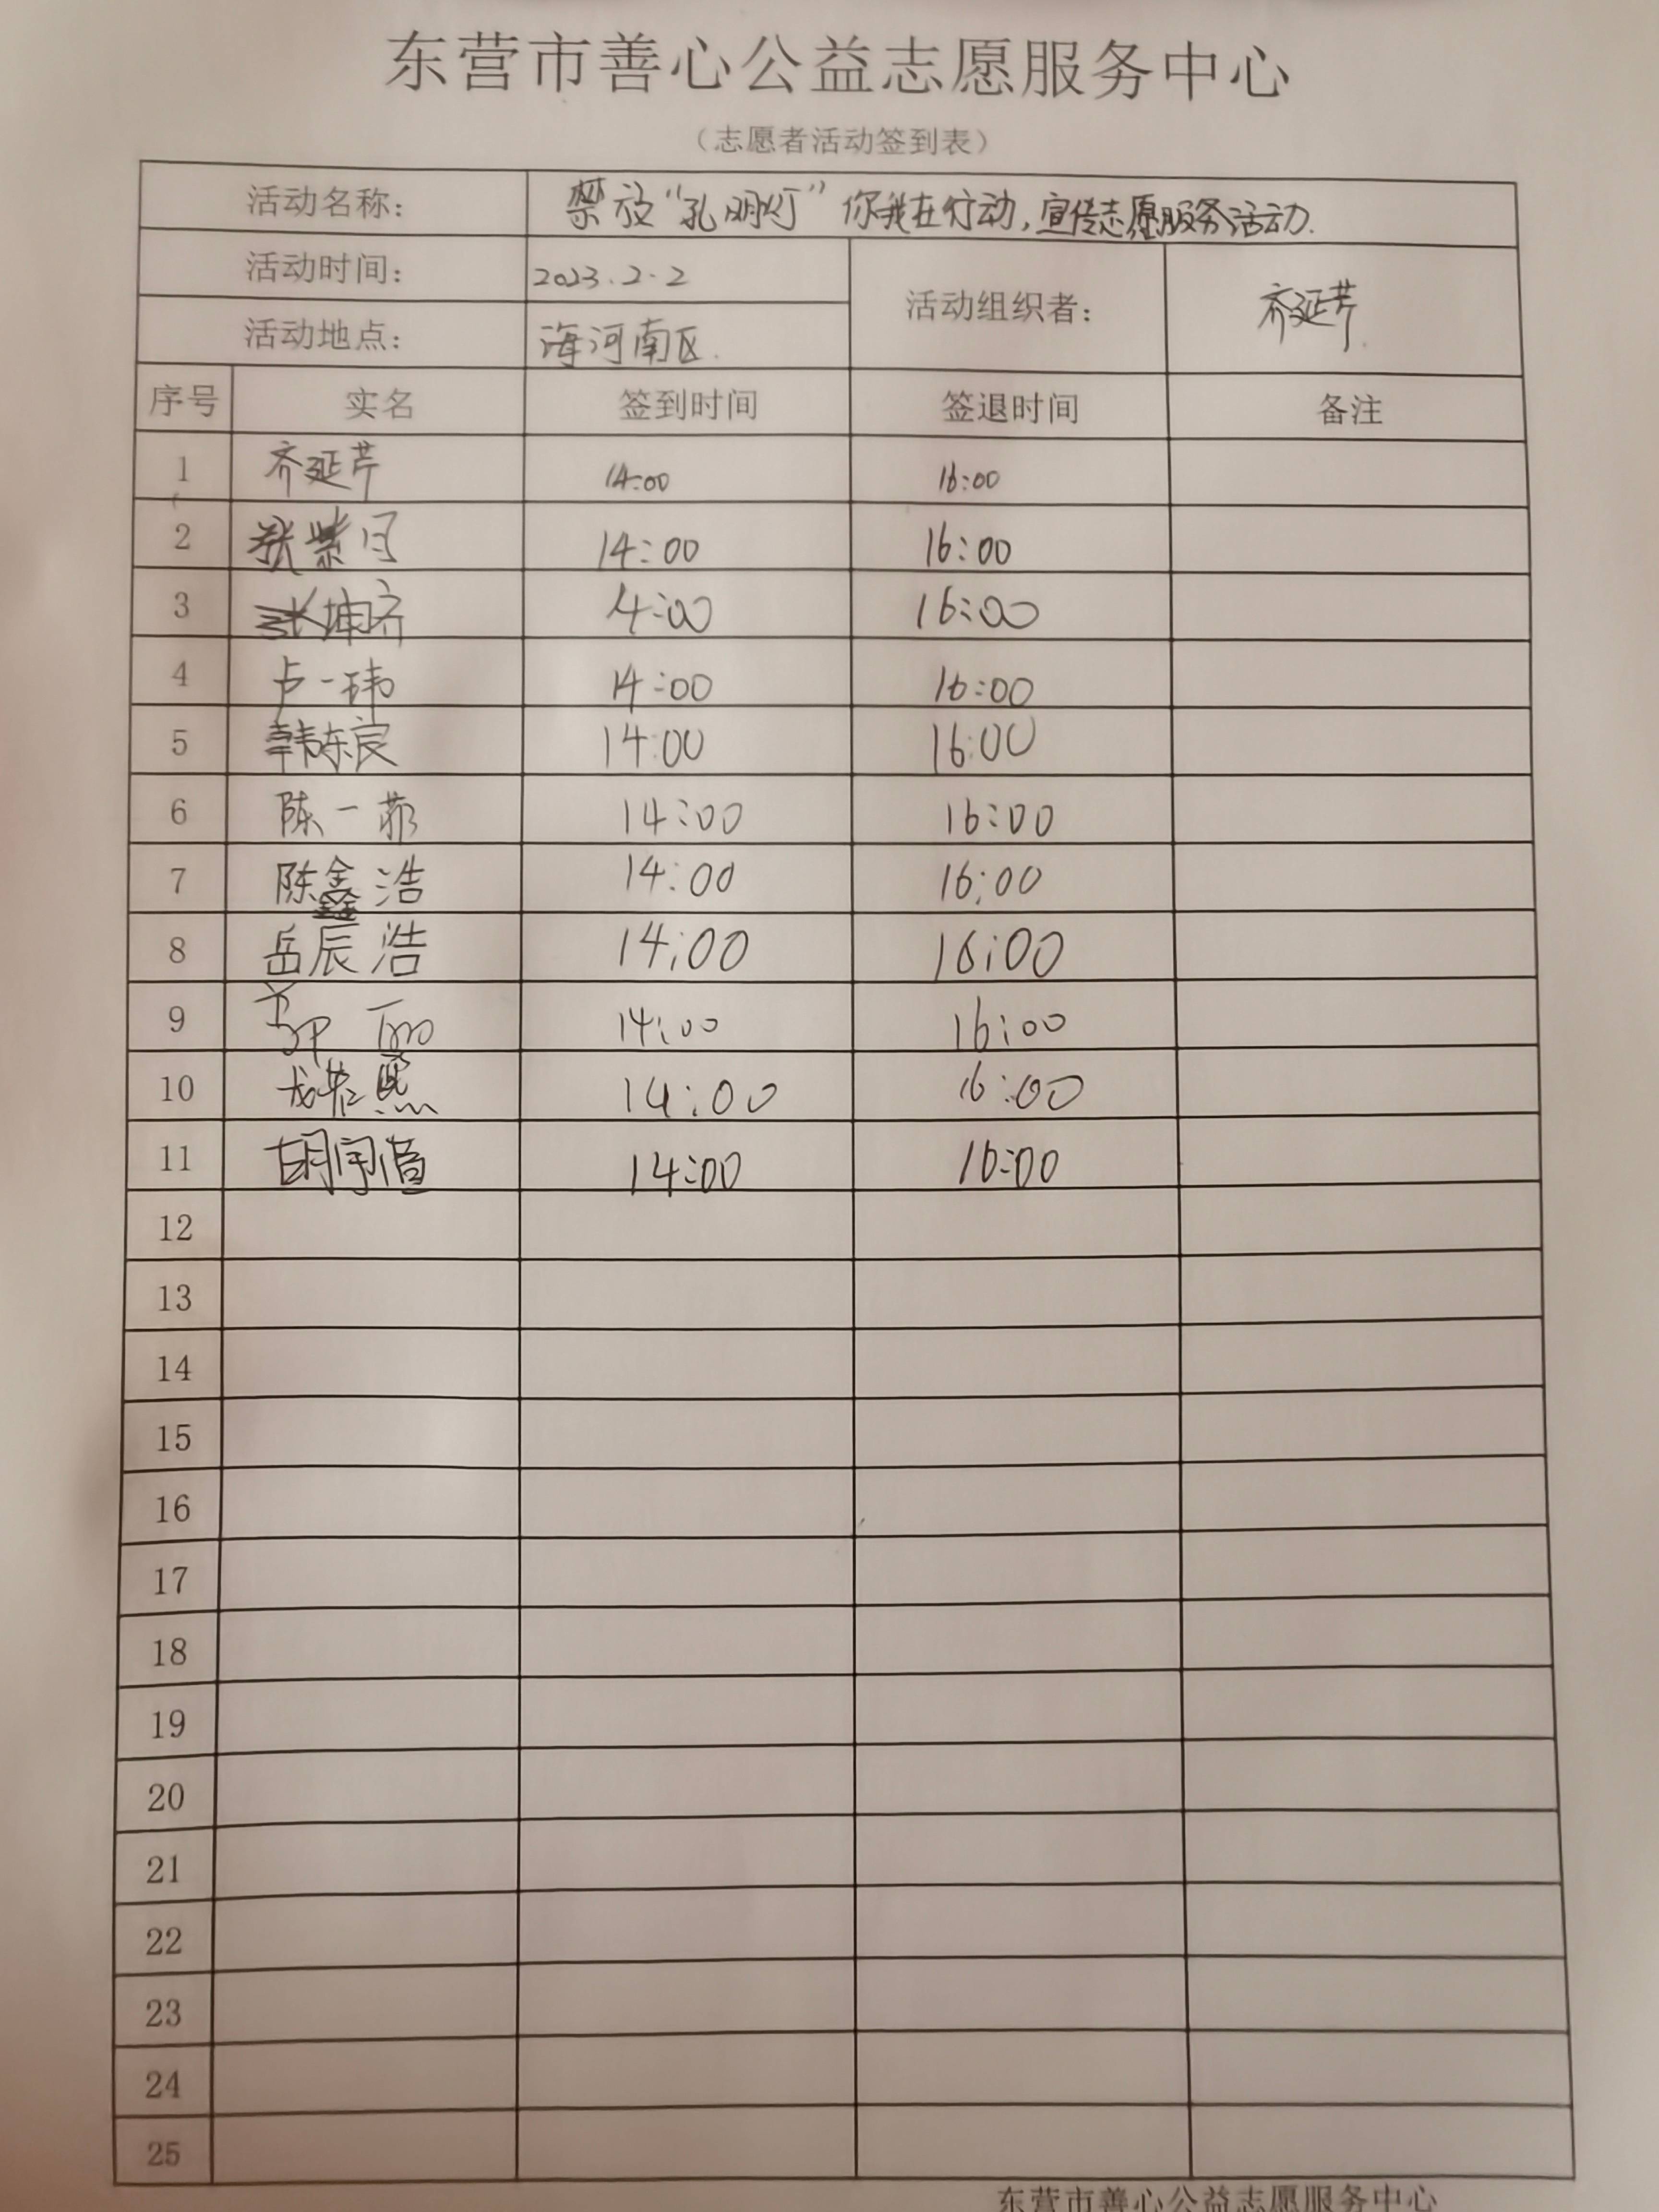 东营市善心公益志愿服务中心
（志愿者活动签到表）
活动名称： 禁放“孔明灯”你我在行动，宣传志愿服务活动.
活动时间： 2023.2.2 活动组织者： 齐延芹
活动地点： 海河南区.
序号 实名 签到时间 签退时间 备注
1 齐延芹 14:00 16:00
2 张紫月 14:00 16:00
3 张坤齐 14:00 16:00
4 卢一玮 14:00 16:00
5 韩东良 14:00 16:00
6 陈一菲 14:00 16:00
7 陈鑫浩 14:00 16:00
8 岳辰浩 14:00 16:00
9 14:00 16:00
10 14:00 16:00
11 胡宇 14:00 16:00
12
13
14
15
16
17
18
19
20
21
22
23
24
25
东营市善心公益志愿服务中心